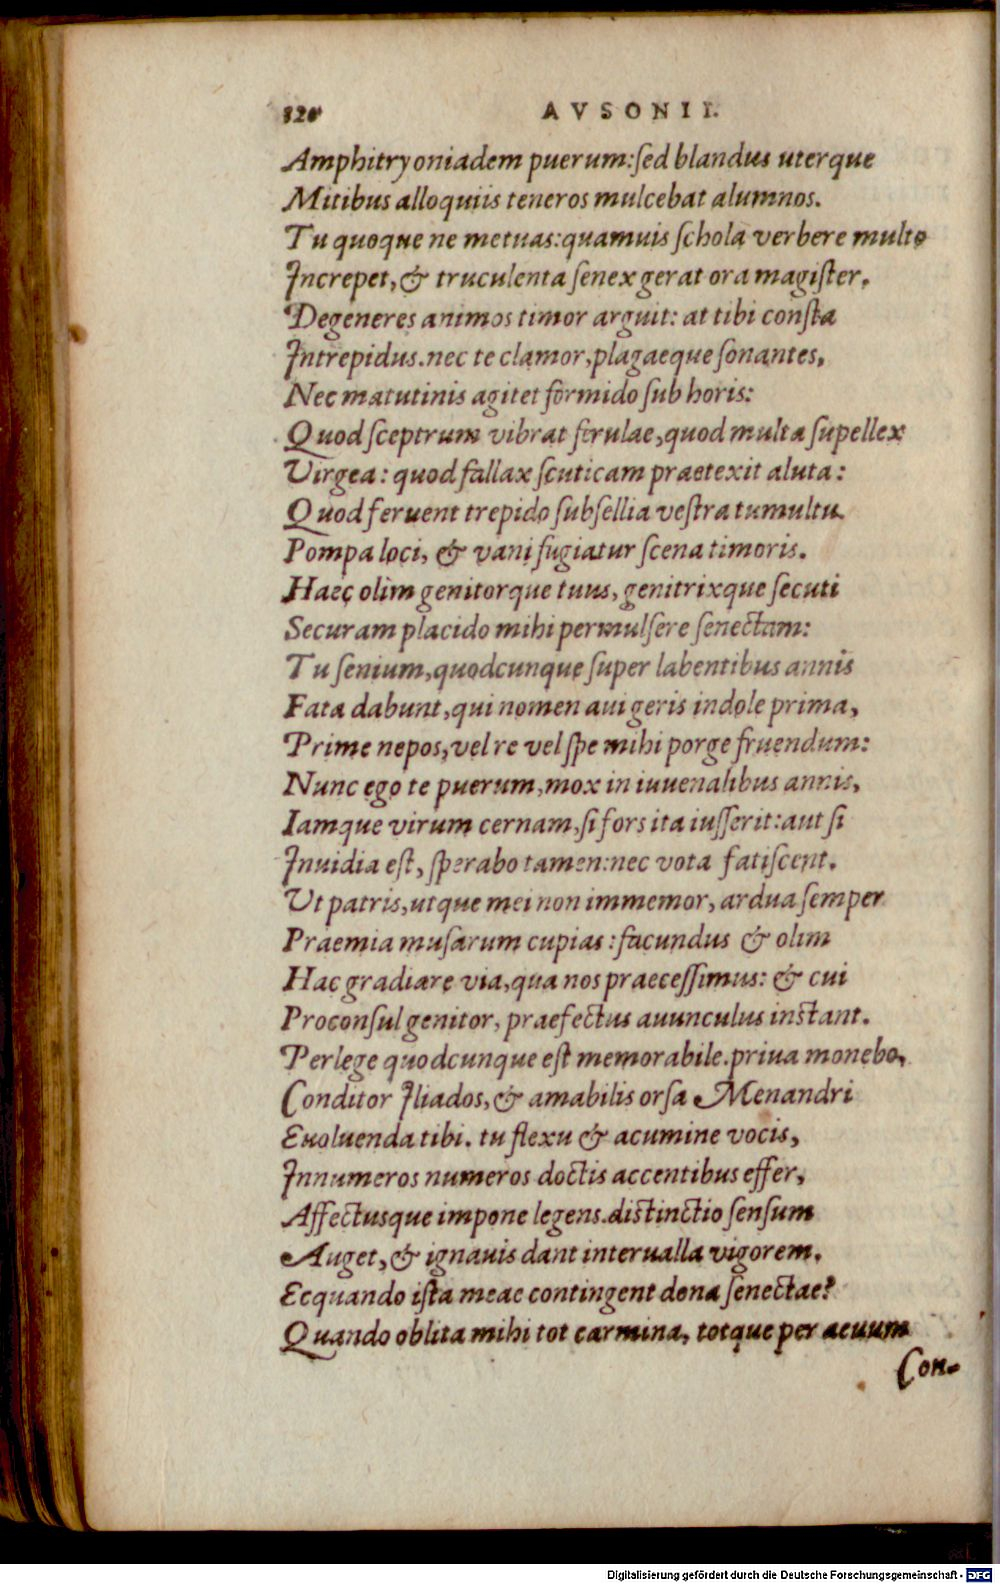 320 AVSONII.
Amphitryoniadem puerum:ſed blandus uterque
Mitibus alloquiis teneros mulcebat alumnos.
Tu quoque ne metuas:quamuis ſchola verbere multo
Increpet,& truculenta ſenex gerat ora magiſter,
Degeneres animos timor arguit: at tibi conſta
Intrepidus.nec te clamor,plagaeque ſonantes,
Nec matutinis agitet formido ſub horis:
Quod ſceptrum vibrat ferulae,quod multa ſupellex
Virgea: quod fallax ſcuticam praetexit aluta:
Quod feruent trepido ſubſellia veſtra tumultu.
Pompa loci, & vani fugiatur ſcena timoris.
Haec olim genitorque tuus, genitrixque ſecuti
Securam placido mihi permulſere ſenectam:
Tu ſenium,quodcunque ſuper labentibus annis
Fata dabunt,qui nomen aui geris indole prima,
Prime nepos,vel re vel ſpe mihi porge fruendum:
Nunc ego te puerum,mox in iuuenalibus annis,
Iamque virum cernam,ſi fors ita iuſſerit:aut ſi
Inuidia eſt, ſperabo tamen:nec vota fatiſcent.
Ut patris,utque mei non immemor, ardua ſemper
Praemia muſarum cupias :facundus & olim
Hac gradiare via,qua nos praeceſſimus: & cui
Proconſul genitor, praefectus auunculus inſtant.
Perlege quodcunque eſt memorabile.priua monebo,
Conditor Iliados,& amabilis orſa Menandri
Euoluenda tibi. tu flexu & acumine vocis,
Innumeros numeros doctis accentibus effer,
Affectusque impone legens.diſtinctio ſenſum
Auget,& ignauis dant interualla vigorem.
Ecquando iſta meae contingent dona ſenectae?
Quando oblita mihi tot carmina, totque per aeuum
Con-
Digitalisierung gefördert durch die Deutsche Forschungsgemeinschaft - DFG